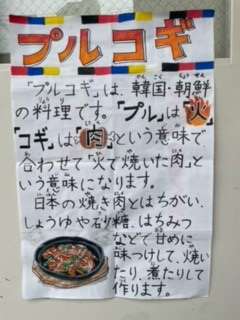 プルコギ
「プルコギ」は、韓国・朝鮮
の料理です。「プル」は「火」
「コギ」は「肉」という意味で
合わせて「火で焼いた肉」と
いう意味になります。
日本の焼き肉とはちがい、
しょうゆや砂糖、はちみつ
などで甘めに
味つけして、焼い
たり、煮たりして
作ります。